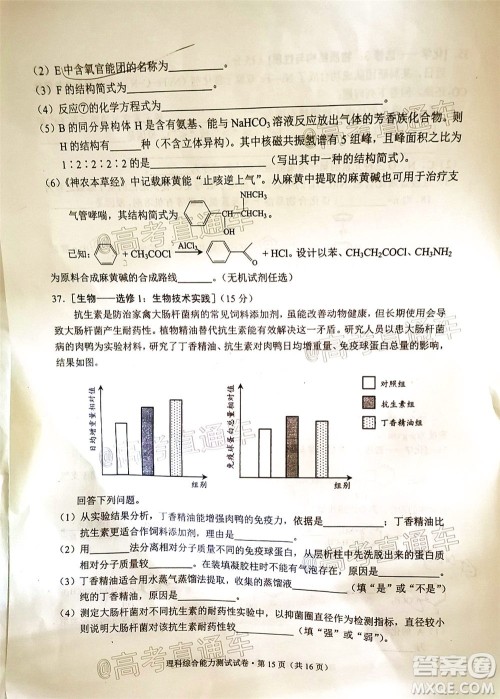 （2）E中含氧官能团的名称为
（3）的结构简式为
（4）反应⑦的化学方程式为
（5）B的同分异构体H是含有氨基、能与NaHCO3溶液反应放出气体的芳香族化合物。则
H有种（不含立体异构）。其中核磁共振氢谱有5组峰，且峰面积之比为
1∶2∶2∶2∶2的是（写出其中一种的结构简式）。
（6）《神农本草经》中记载麻黄能“止咳逆上气”。从麻黄中提取的麻黄碱也可用于治疗支
NHCH3
气管哮喘，其结构简式为
CHCH3
OH
已知：
+ CH3COCl
AlCl3
+ HCl。设计以苯、CH3CH2COCl、CH3NH2
为原料合成麻黄碱的合成路线（无机试剂任选）
37.［生物——选修1：生物技术实践］（15分）
抗生素是防治家禽大肠杆菌病的常见饲料添加剂，能改善动物健康，但长期使用会
导致大肠杆菌产生耐药性。植物精油替代抗生素是能有效解决这一难题。某兴趣小组以患大肠杆菌
病的肉鸭为实验材料，研究了丁香精油、抗生素对肉鸭日均增重量、免疫球蛋白总量的影响，
结果如图。
日均增重量相对值
组别
免疫球蛋白总量相对值
组别
对照组
抗生素组
丁香精油组
回答下列问题。
（1）从实验结果分析，丁香精油能增强肉鸭的免疫力，依据是；丁香精油比
抗生素更适合作饲料添加剂，依据是。
（2）用法分离相对分子质量不同的免疫球蛋白时，从层析柱中先洗脱出来的蛋白质
相对分子质量较。在装填凝胶柱时不能有气泡存在，原因是。
（3）丁香精油适合用水蒸气蒸馏法提取，收集的蒸馏液（填“是”或“不是”）
纯的丁香精油，原因是。
（4）测定大肠杆菌对不同抗生素耐药性实验中，以抑菌圈直径作为检测指标，抑菌圈直径
越小，说明大肠杆菌对该抗生素的耐药性越（填“强”或“弱”）。
理科综合能力测试试卷·第15页（共16页）
@高考直通车
@高考直通车
答案圈
MXQE.COM